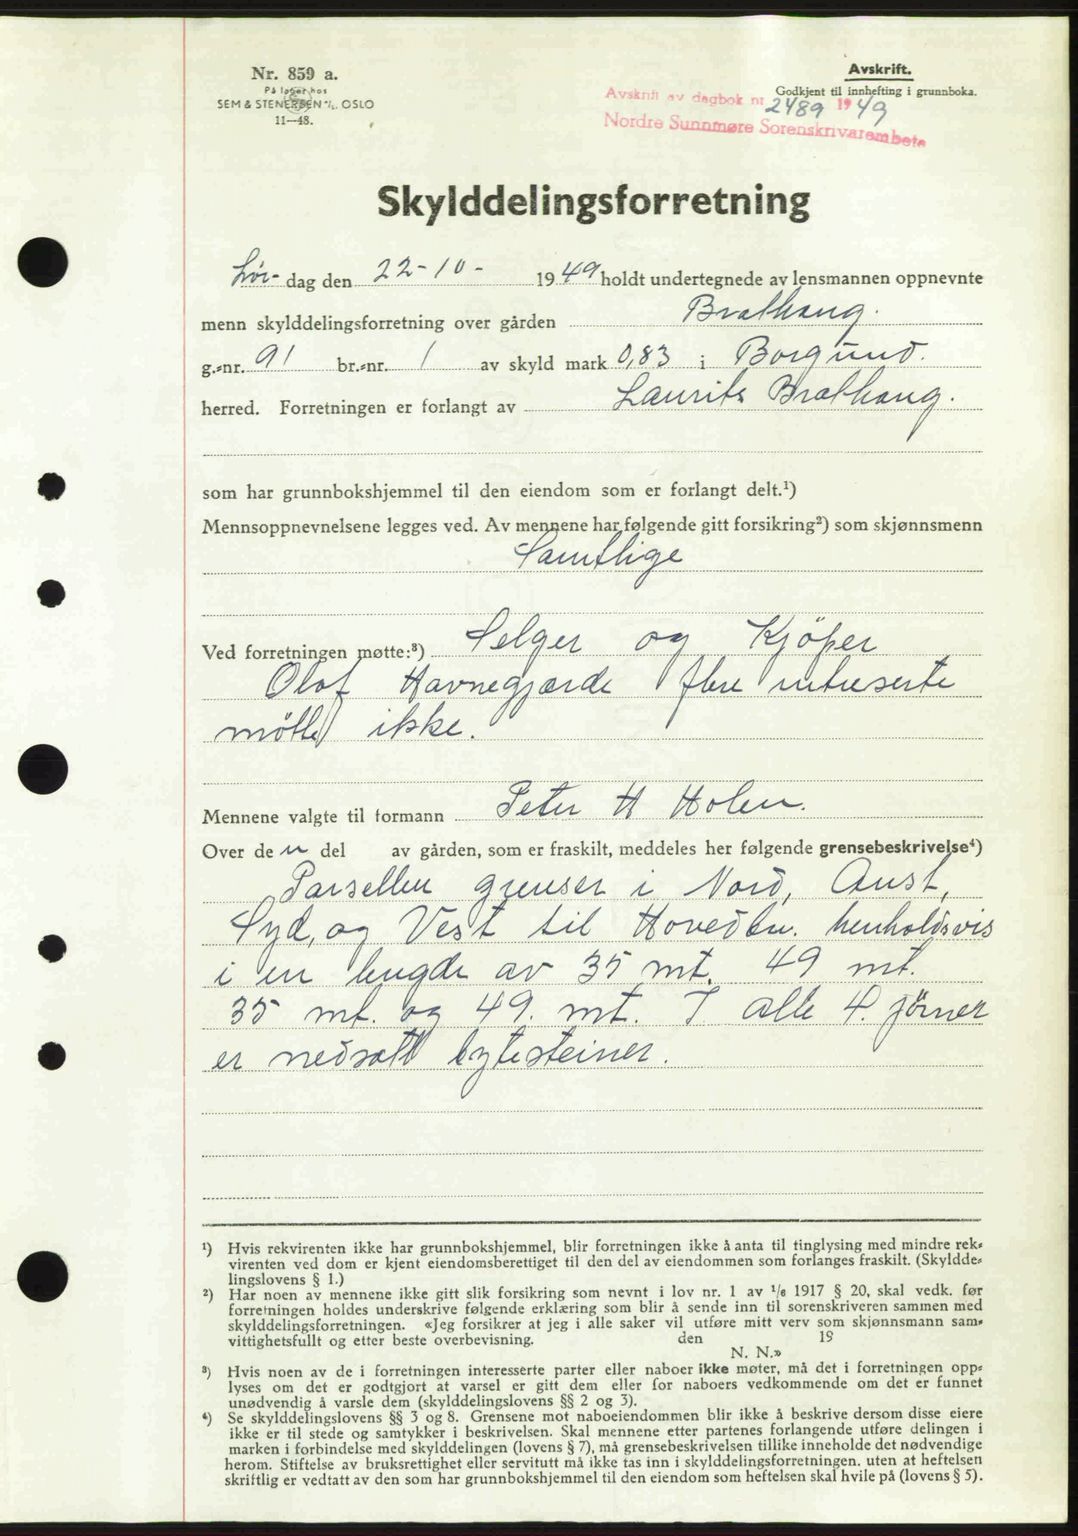 Nr. 859 a.
På lager hos
SEM & STENERSEN A/S. OSLO
11—48.
Avskrift.
Godkjent til innhefting i grunnboka.
Avskrift av dagbok nr 2489 1949
Nordre Sunnmøre Sorenskrivarembete
Skylddelingsforretning
Lør- dag den 22-10- 1949 holdt undertegnede av lensmannen oppnevnte
menn skylddelingsforretning over gården Brathaug.
g.-nr. 91 br.-nr. 1 av skyld mark 0,83 i Borgund.
herred. Forretningen er forlangt av Laurits Brathaug.
som har grunnbokshjemmel til den eiendom som er forlangt delt.¹)
Mennsoppnevnelsene legges ved. Av mennene har følgende gitt forsikring²) som skjønnsmenn
Samtlige
Ved forretningen møtte:³) Selger og Kjöper
Olaf Havnegjærde flere intreserte
mötte ikke.
Mennene valgte til formann Peter H Holen.
Over de n del av gården, som er fraskilt, meddeles her følgende grensebeskrivelse⁴)
Parsellen grenser i Nord, Aust,
Syd, og Vest til Hovedbr. henholdsvis
i en lengde av 35 mt. 49 mt.
35 mt. og 49. mt. I alle 4. jörner
er nedsatt bytesteiner.
¹) Hvis rekvirenten ikke har grunnbokshjemmel, blir forretningen ikke å anta til tinglysing med mindre rek-
virenten ved dom er kjent eiendomsberettiget til den del av eiendommen som forlanges fraskilt. (Skyldde-
lingslovens § 1.)
²) Har noen av mennene ikke gitt slik forsikring som nevnt i lov nr. 1 av ¹/₆ 1917 § 20, skal vedk. før
forretningen holdes underskrive følgende erklæring som blir å sende inn til sorenskriveren sammen med
skylddelingsforretningen. «Jeg forsikrer at jeg i alle saker vil utføre mitt verv som skjønnsmann sam-
vittighetsfullt og etter beste overbevisning. den 19
N. N.»
³) Hvis noen av de i forretningen interesserte parter eller naboer ikke møter, må det i forretningen opp-
lyses om det er godtgjort at varsel er gitt dem eller for naboers vedkommende om det er funnet
unødvendig å varsle dem (skylddelingslovens §§ 2 og 3).
⁴) Se skylddelingslovens §§ 3 og 8. Grensene mot naboeiendommen blir ikke å beskrive dersom disse eiere
ikke er til stede og samtykker i beskrivelsen. Skal mennene etter partenes forlangende utføre delingen i
marken i forbindelse med skylddelingen (lovens § 7), må grensebeskrivelsen tillike inneholde det nødvendige
herom. Stiftelse av bruksrettighet eller servitutt må ikke tas inn i skylddelingsforretningen. uten at heftelsen
skriftlig er vedtatt av den som har grunnbokshjemmel til den eiendom som heftelsen skal hvile på (lovens § 5).